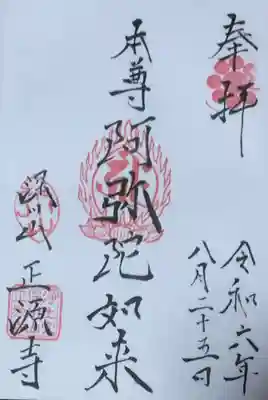 奉拝
令和六年
八月二十五日
本尊
阿弥陀如来
正源寺